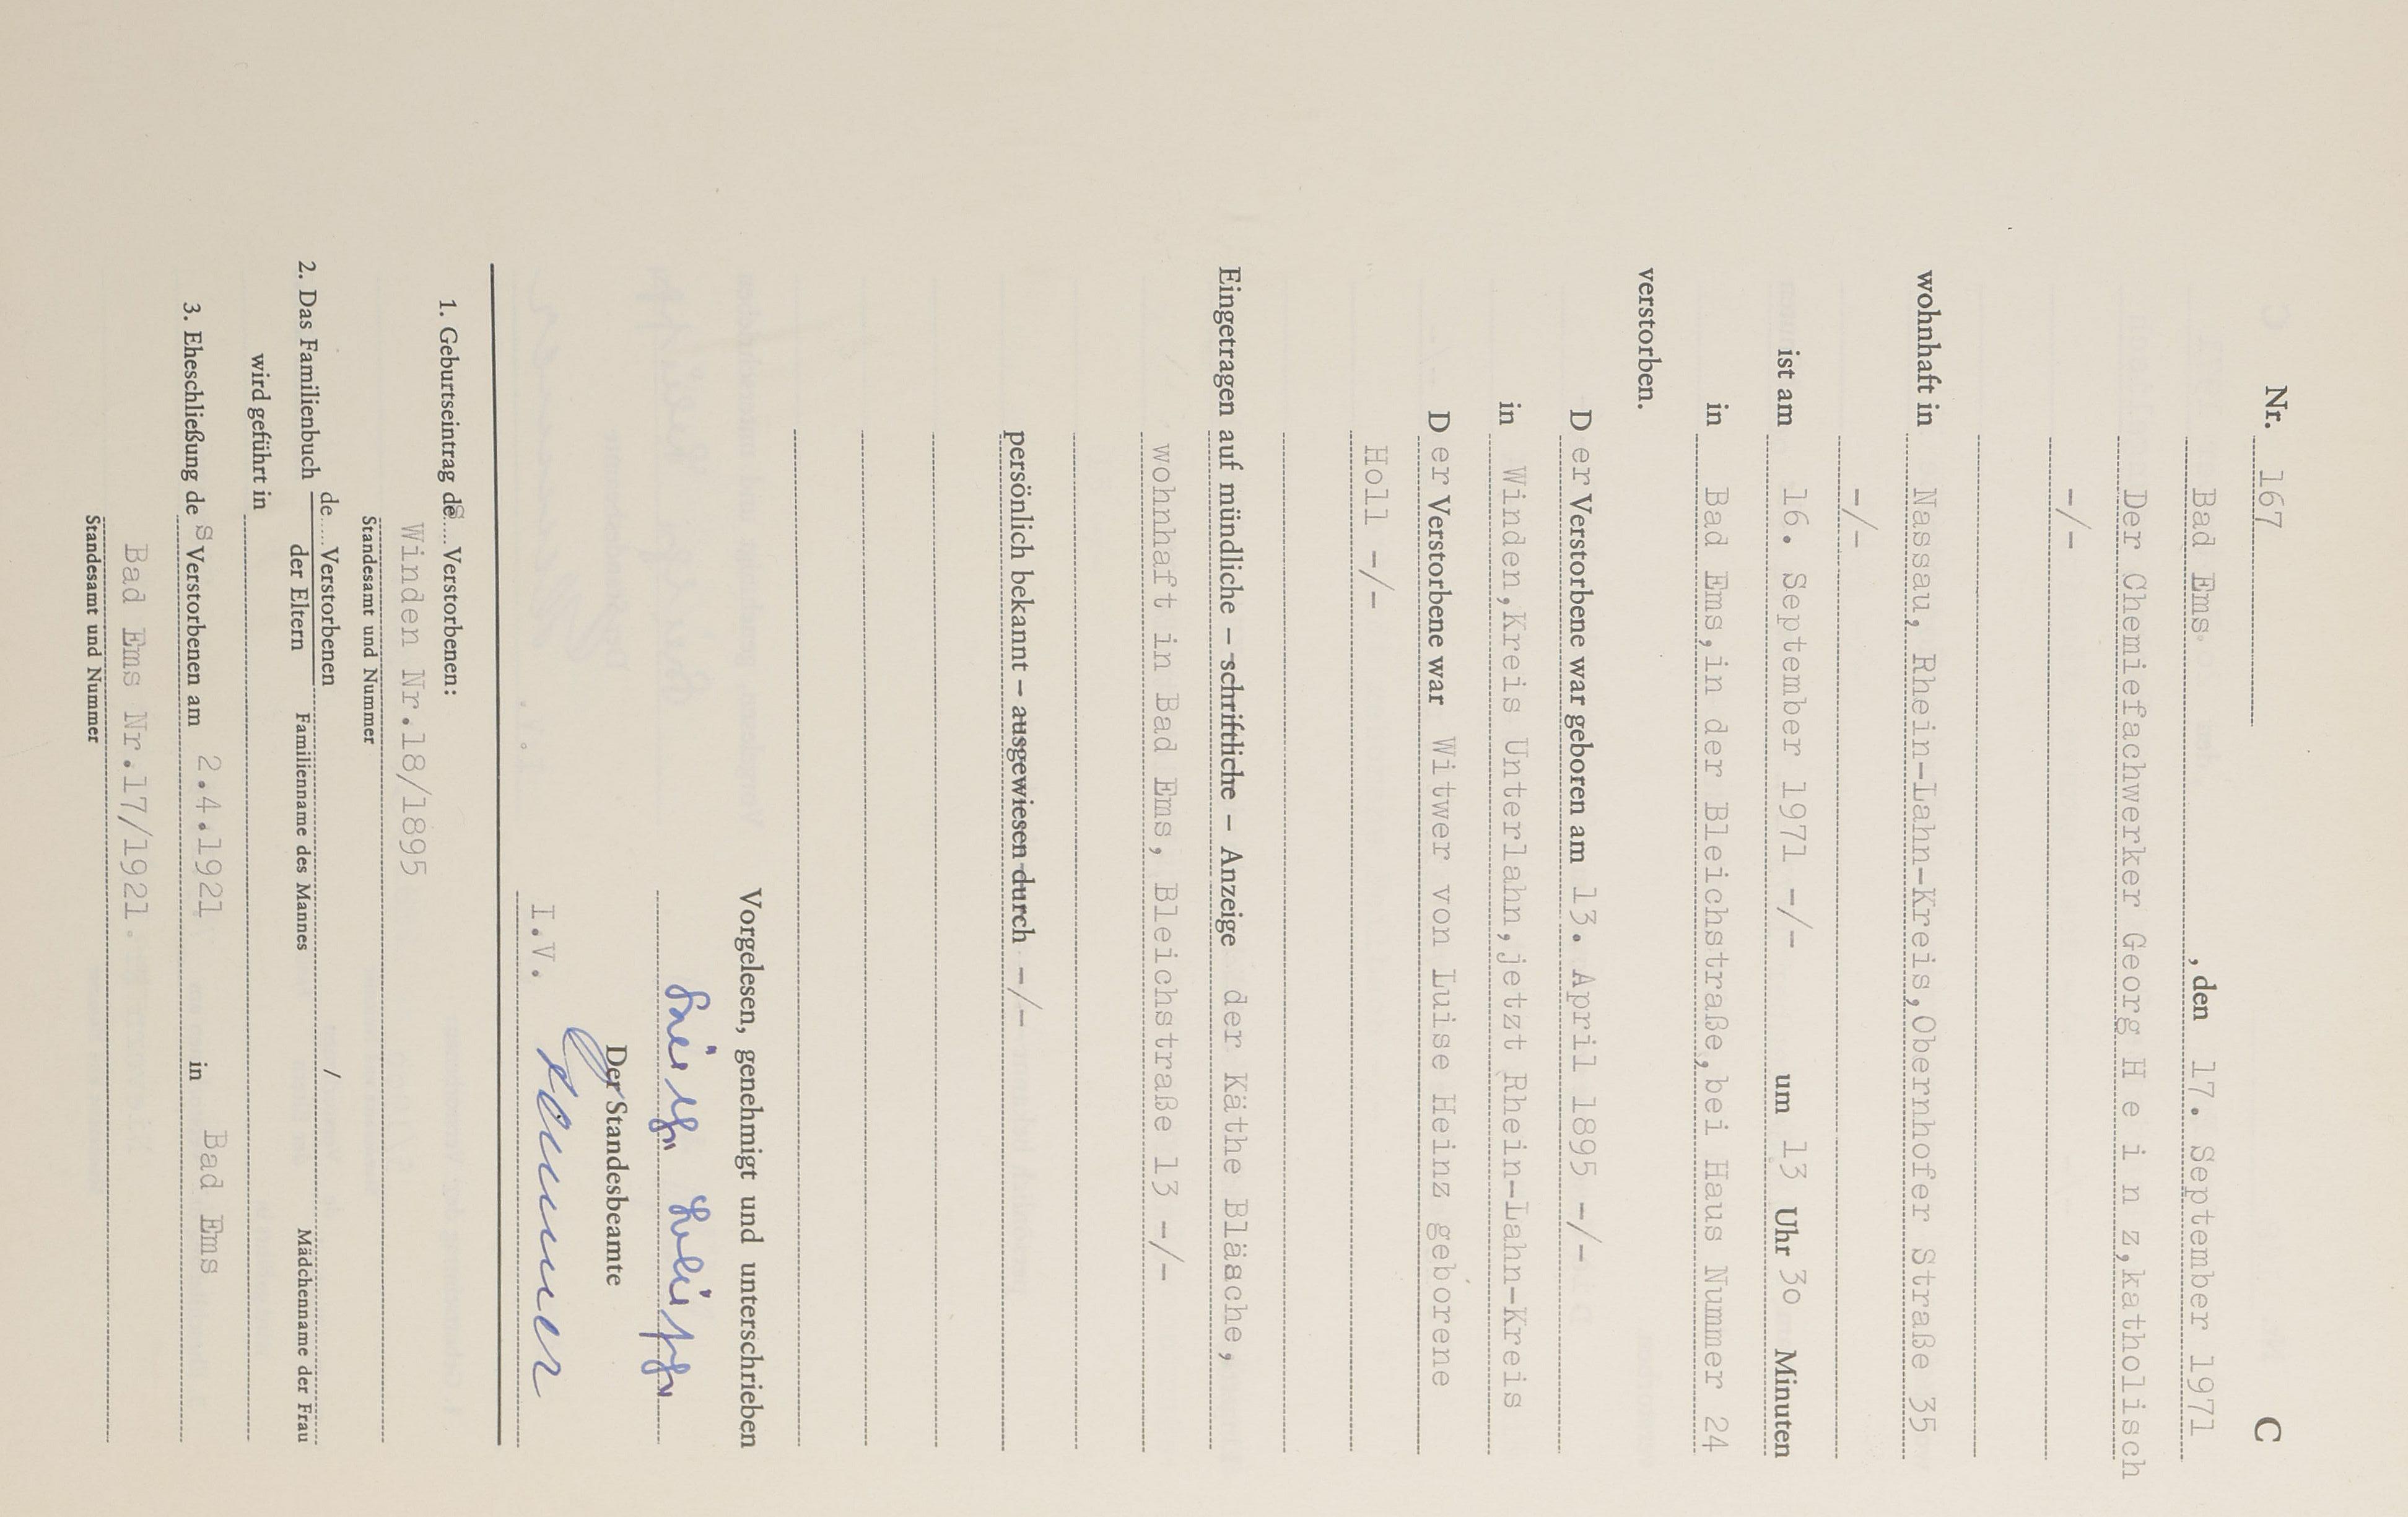 Nr. 167 C
Bad Ems , den 17. September 1971
Der Chemiefachwerker Georg H e i n z, katholisch
-/-
wohnhaft in Nassau, Rhein-Lahn-Kreis, Obernhofer Straße 35
-/-
ist am 16. September 1971 -/- um 13 Uhr 30 Minuten
in Bad Ems, in der Bleichstraße, bei Haus Nummer 24
verstorben.
D er Verstorbene war geboren am 13. April 1895 -/-
in Winden, Kreis Unterlahn, jetzt Rhein-Lahn-Kreis
D er Verstorbene war Witwer von Luise Heinz geborene
Holl -/-
Eingetragen auf mündliche – schriftliche – Anzeige der Käthe Bläsche,
wohnhaft in Bad Ems, Bleichstraße 13 -/-
persönlich bekannt – ausgewiesen durch -/-
Vorgelesen, genehmigt und unterschrieben
Der Standesbeamte
I.V.
1. Geburtseintrag des Verstorbenen:
Winden Nr.18/1895
Standesamt und Nummer
2. Das Familienbuch de.... Verstorbenen /
der Eltern Familienname des Mannes Mädchenname der Frau
wird geführt in
3. Eheschließung de s Verstorbenen am 2.4.1921 in Bad Ems
Bad Ems Nr.17/1921.
Standesamt und Nummer